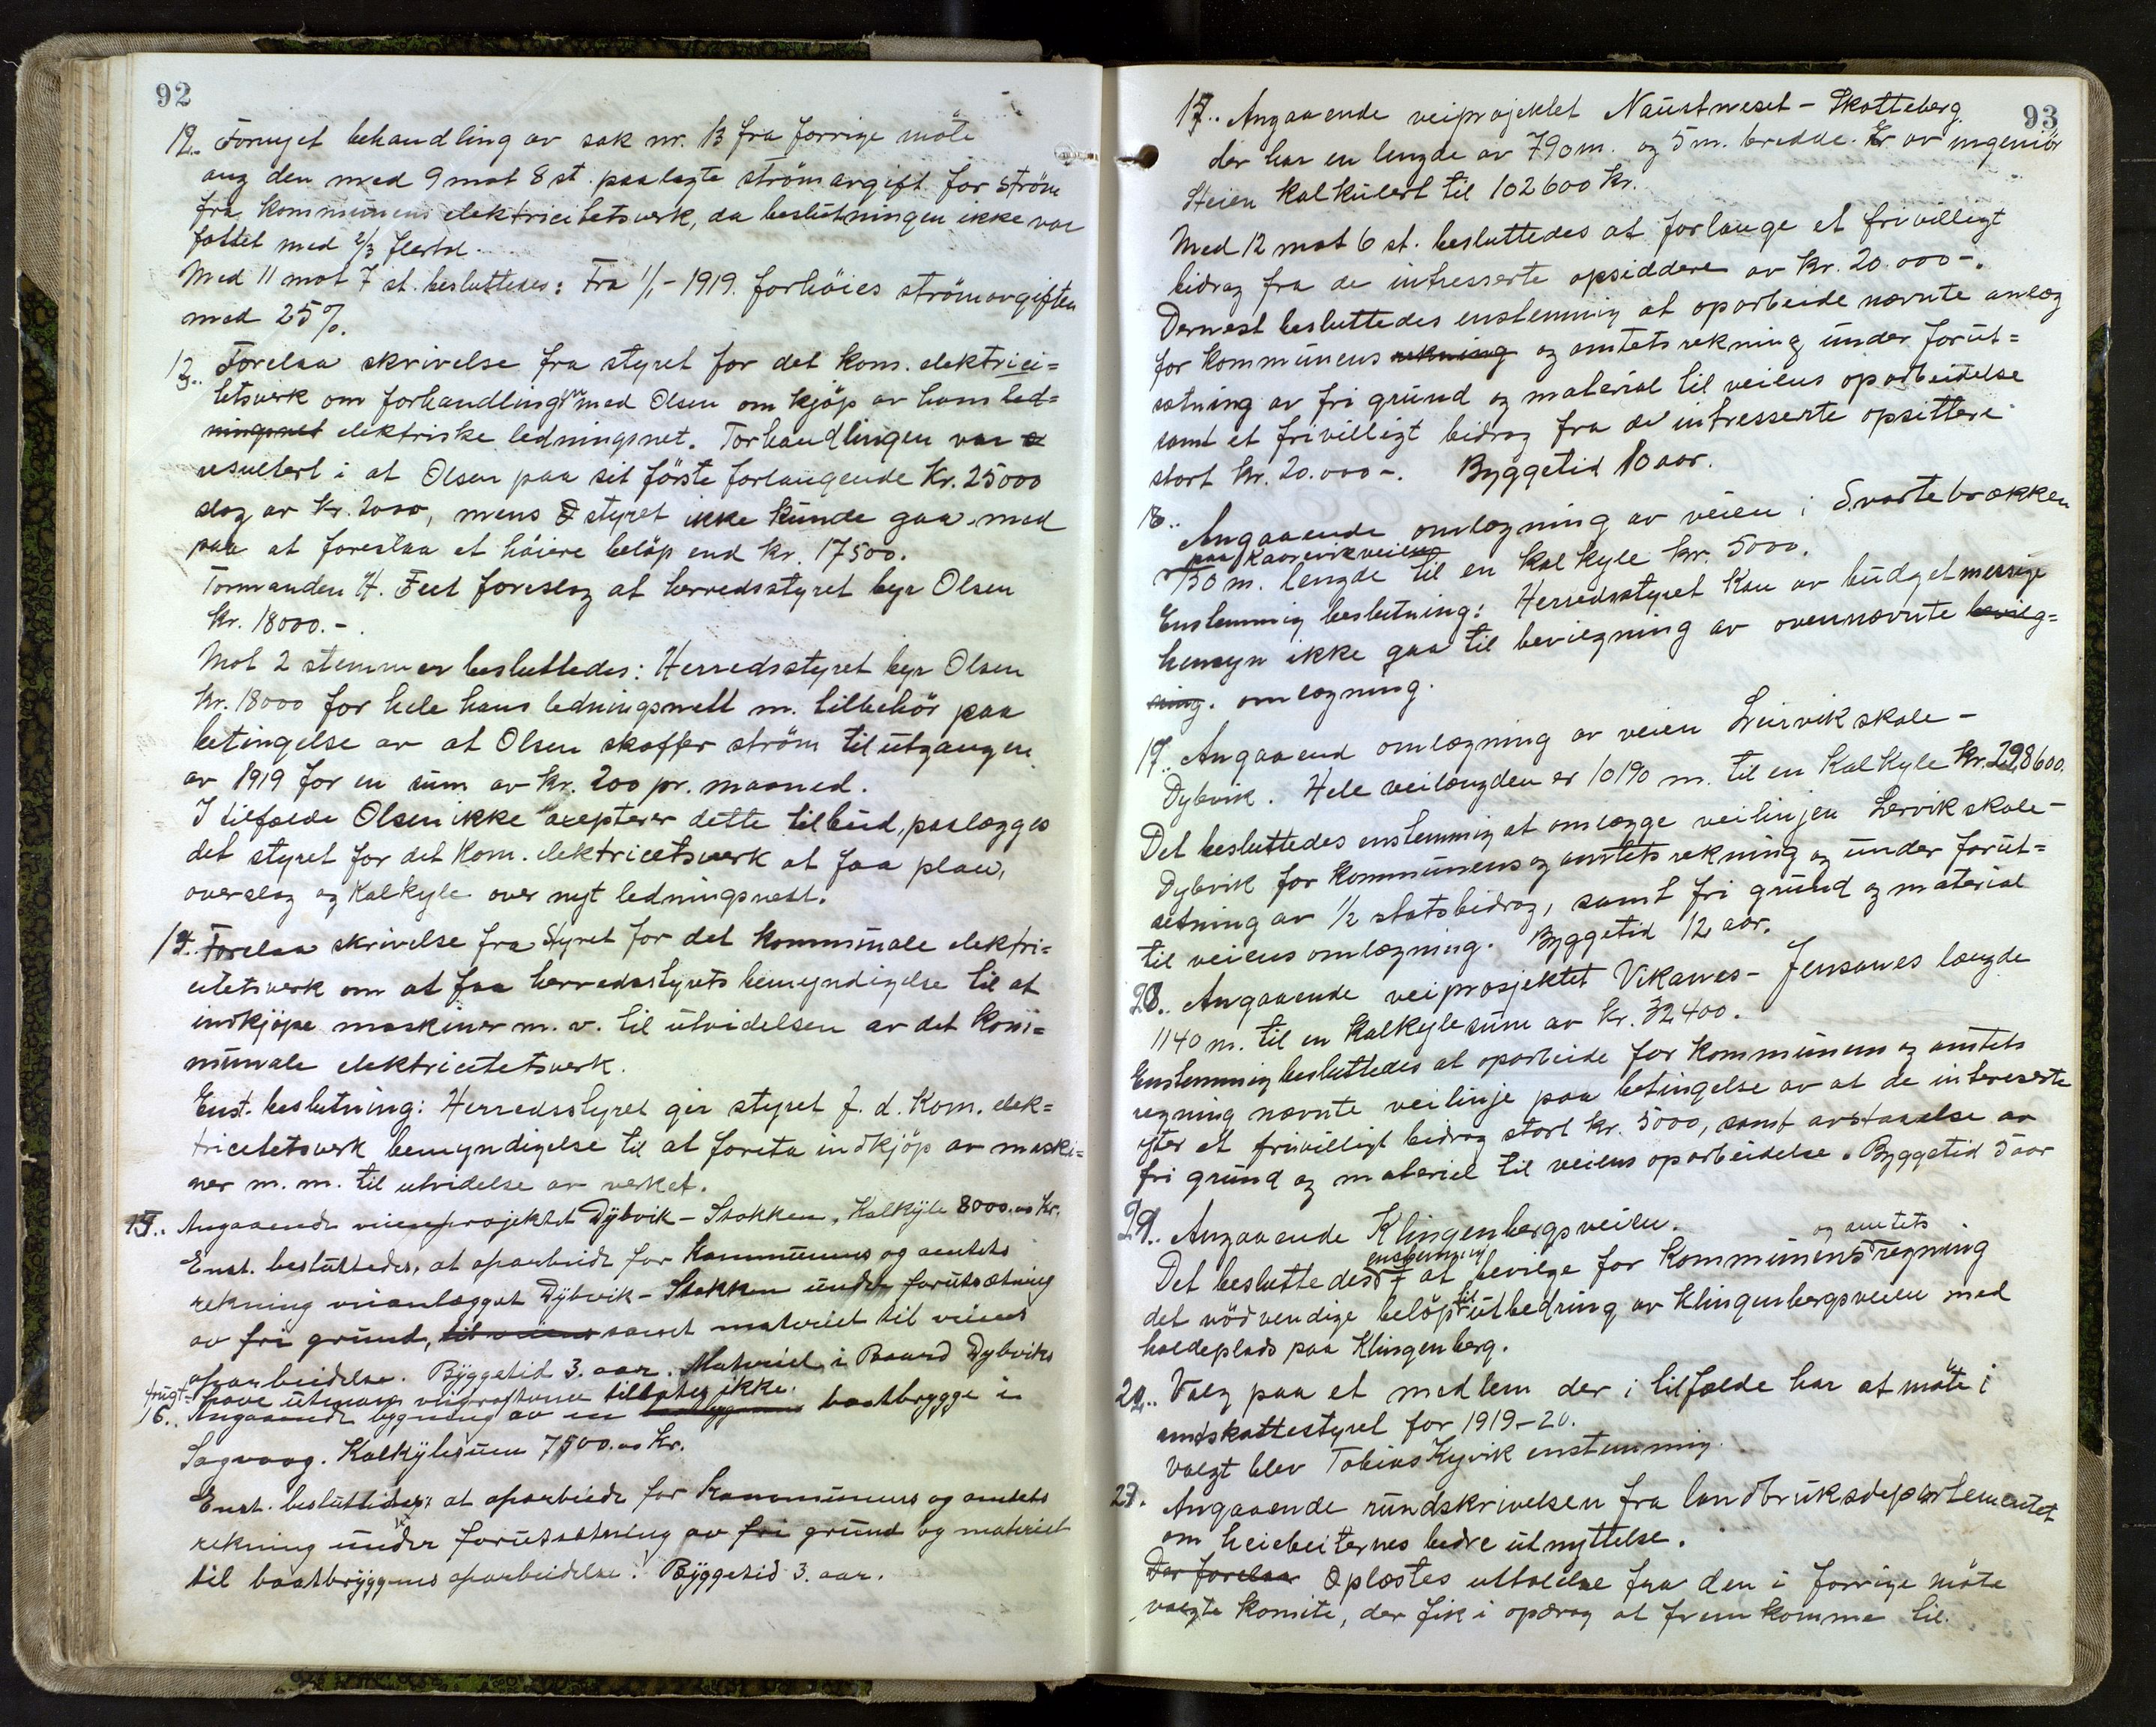 92
12.. Fornyet behandling av sak nr. 13 fra forrige möte
ang den med 9 mot 8 st. paalagte strömavgift for ström
fra kommunens elektricitetsverk, da beslutningen ikke var
fattet med 2/3 flertal.
Med 11 mot 7 st. besluttedes: Fra 1/1 - 1919. forhöies strömavgiften
med 25%.
13.. Forelaa skrivelse fra styret for det kom. elektrici=
tetsverk om forhandling med Olsen om kjöp av hans led=
ningsnet elektriske ledningsnet. Forhandlingen var
resultert i at Olsen paa sit förste forlangende Kr. 25000
slog av Kr. 2000, mens styret ikke kunde gaa med
paa at foreslaa et höiere belöp end kr. 17500.
Formanden H. Feet foreslog at herredsstyret byr Olsen
Kr. 18000.-.
Mot 2 stemmer besluttedes: Herredsstyret byr Olsen
Kr. 18000 for hele hans ledningsnett m. tilbehör paa
betingelse av at Olsen skaffer ström til utgangen
av 1919 for en sum av kr. 200 pr. maaned.
I tilfælde Olsen ikke axepterer dette tilbud, paalægges
det styret for det kom. elektricetsverk at faa plan,
overslag og kalkyle over nyt ledningsnett.
14.. Forelaa skrivelse fra Styret for det kommunale elektri=
citetsverk om at faa herredsstyrets bemyndigelse til at
indkjöpe maskiner m. v. til utvidelsen av det kom=
munale elektricitetsverk.
Enst. beslutning: Herredsstyret gir styret f. d. kom. elek=
tricitetsverk bemyndigelse til at foreta indkjöp av maski=
ner m. m. til utvidelse av verket.
15.. Angaaende veienprojektet Dybvik - Stokken, Kalkyle 8000.00 Kr.
Enst. besluttedes, at oparbeide for Kommunens og amtets
rekning veianlægget Dybvik - Stokken under forutsætning
av fri grund, til veiens samt materiel til veiens
oparbeidelse. Byggetid 3. aar. Materiel i Baard Dybviks
frugt- have utenom veigrøfterne tillates ikke.
16.. Angaaende bygning av en baatbrygge i
Sagvaag. Kalkylesum 7500.00 Kr.
Enst. besluttedes: at oparbeide for Kommunens og amtets
rekning under forutsætning av fri grund og materiel
til baatbryggens oparbeidelse. Byggetid 3. aar.
93
17.. Angaaende veiprojektet Naustneset - Skotteberg
der har en lengde av 790 m. og 5 m. bredde. Er av ingeniör
Steien kalkulert til 102600 Kr.
Med 12 mot 6 st. besluttedes at forlange et frivilligt
bidrag fra de intresserte opsiddere av kr. 20.000-.
Dernest besluttedes enstemmig at oparbeide nævnte anlæg
for kommunens rekning og amtets rekning under forut=
sætning av fri grund og material til veiens oparbeidelse
samt et frivilligt bidrag fra de intresserte opsittere
stort kr. 20.000-. Byggetid 10 aar.
18.. Angaaende omlægning av veien i Svartebækken
paa Kaarevikveien
150 m. lengde til en kalkyle kr. 5000.
Enstemmig beslutning: Herredsstyret kan av budgetmessige
hensyn ikke gaa til bevilgning av ovennævnte bevilg=
ning. omlægning.
19.. Angaaend omlægning av veien Leirvik skole -
Dybvik. Hele veilængden er 10190 m. til en kalkyle kr. 298600.
Det besluttedes enstemmig at omlægge veilinjen Lervik skole -
Dybvik for kommunens og amtets rekning og under forut=
setning av 1/2 statsbidrag, samt fri grund og material
til veiens omlægning. Byggetid 12 aar.
20.. Angaaende veiprosjektet Vikanes - Jensanes længde
1140 m. til en kalkylesum av kr. 32400.
Enstemmig besluttedes at oparbeide for kommunens og amtets
regning nævnte veilinje paa betingelse av at de intereserte
yter et frivilligt bidrag stort kr. 5000, samt avstaaelse av
fri grund og materiel til veiens oparbeidelse. Byggetid 5 aar
21.. Angaaende Klingenbergsveien.
enstemmig og amtets
Det besluttedes at bevilge for kommunens regning
det nödvendige belöp til utbedring av Klingenbergsveien med
holdeplads paa Klingenberg.
22.. Valg paa et medlem der i tilfælde har at möte i
amtskattestyret for 1919-20.
Valgt blev Tobias Kyvik enstemmig.
23. Angaaende rundskrivelsen fra landbruksdepartementet
om heiebeiternes bedre utnyttelse.
Der forelaa Oplæstes uttalelse fra den i forrige möte
valgte komite, der fik i opdrag at fremkomme til.